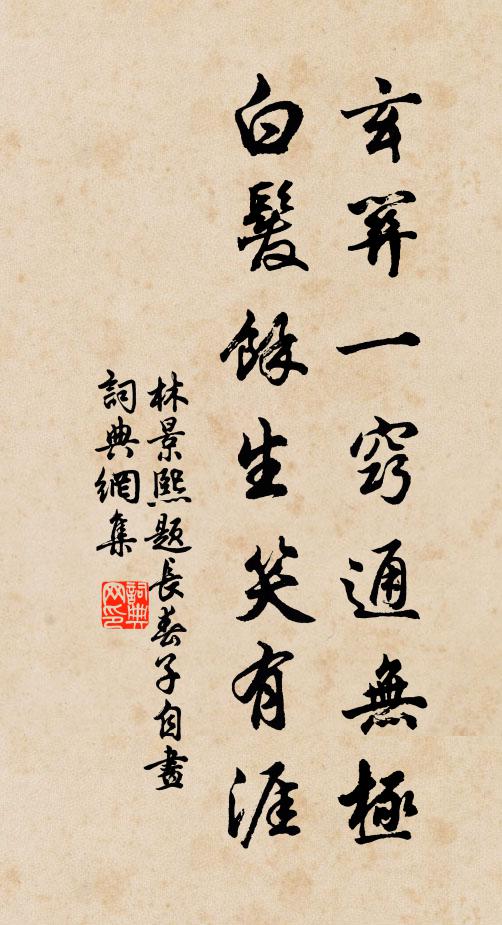 玄關一竅通無極
白髮餘生笑有涯
林景熙題長春子自畫
詞典網集
詞典网印